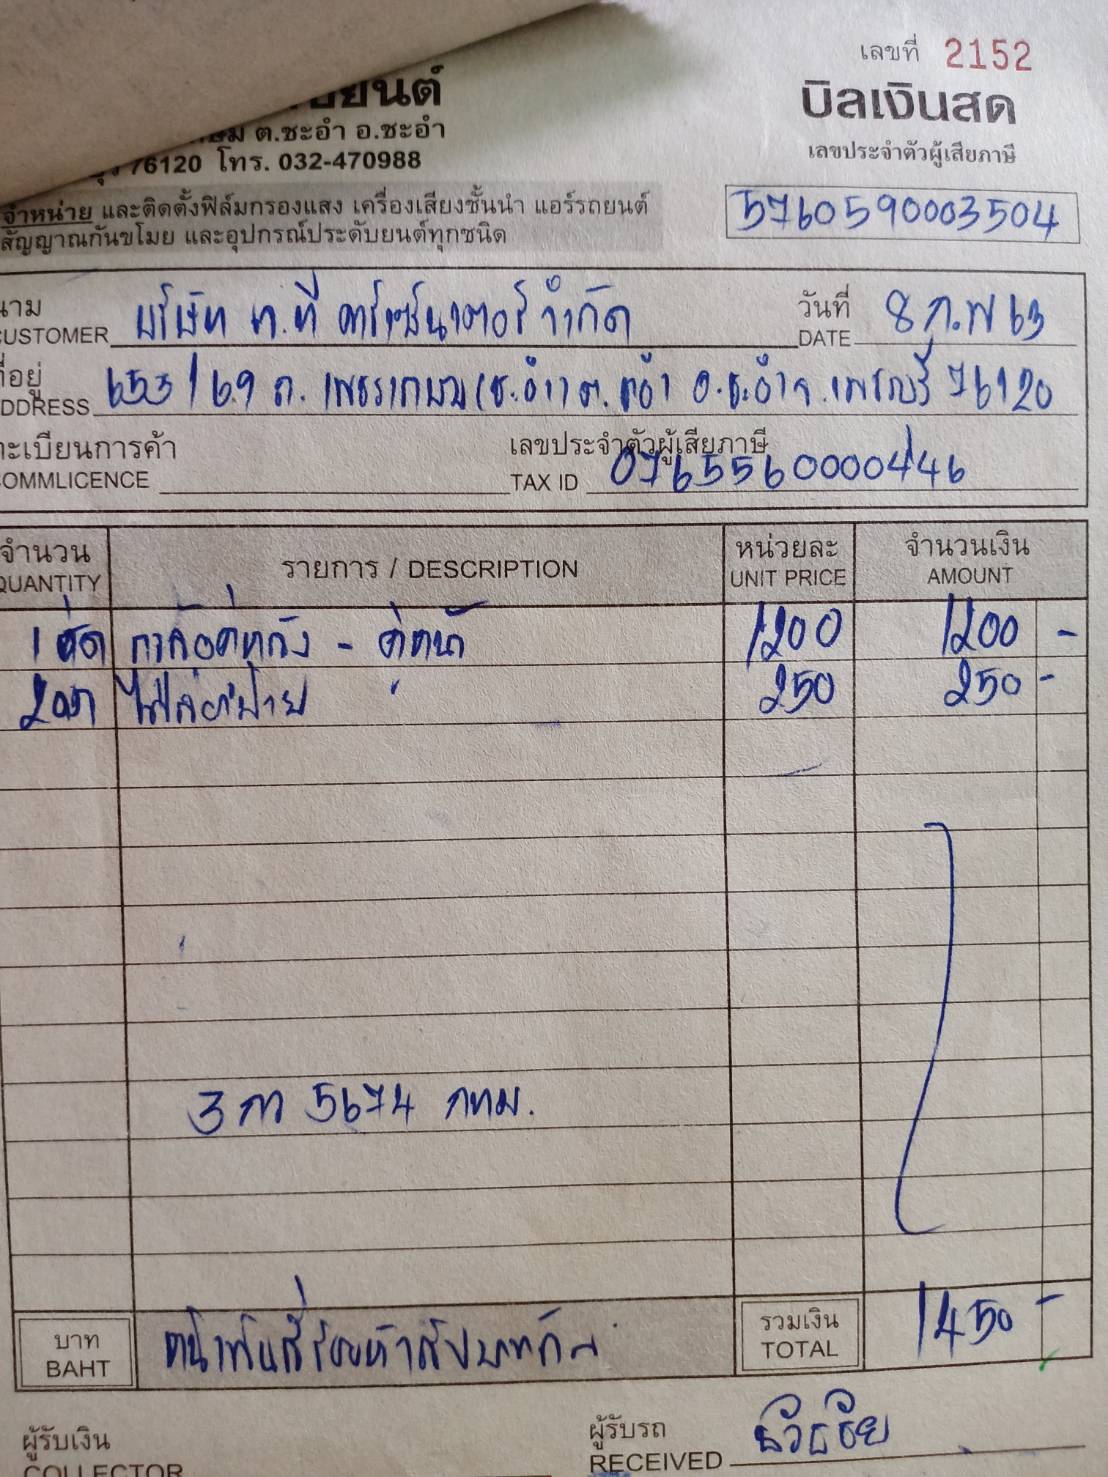 เลขที่ 2152
บิลเงินสด
เลขประจำตัวผู้เสียภาษี
5760590003504
ยนต์
ต.ชะอำ อ.ชะอำ
76120 โทร. 032-470988
จำหน่าย และติดตั้งฟิล์มกรองแสง เครื่องเสียงชั้นนำ แอร์รถยนต์
สัญญาณกันขโมย และอุปกรณ์ประดับยนต์ทุกชนิด
นาม
CUSTOMER บริษัท ท.ที คาร์เซ็นเตอร์ จำกัด
วันที่
DATE 8 ก.พ 63
ที่อยู่
ADDRESS 653/69 ถ. เพชรเกษม ต.ชะอำ อ.ชะอำ จ.เพชรบุรี 76120
ทะเบียนการค้า
COMMLICENCE
เลขประจำตัวผู้เสียภาษี
TAX ID 0765560000446
จำนวน
QUANTITY
รายการ / DESCRIPTION
หน่วยละ
UNIT PRICE
จำนวนเงิน
AMOUNT
1 ชุด 1200 1200 -
250 250 -
3 กว 5674 กทม.
บาท
BAHT หนึ่งพันสี่ร้อยห้าสิบบาทถ้วน
รวมเงิน
TOTAL 1450 -
ผู้รับเงิน
COLLECTOR
ผู้รับรถ
RECEIVED